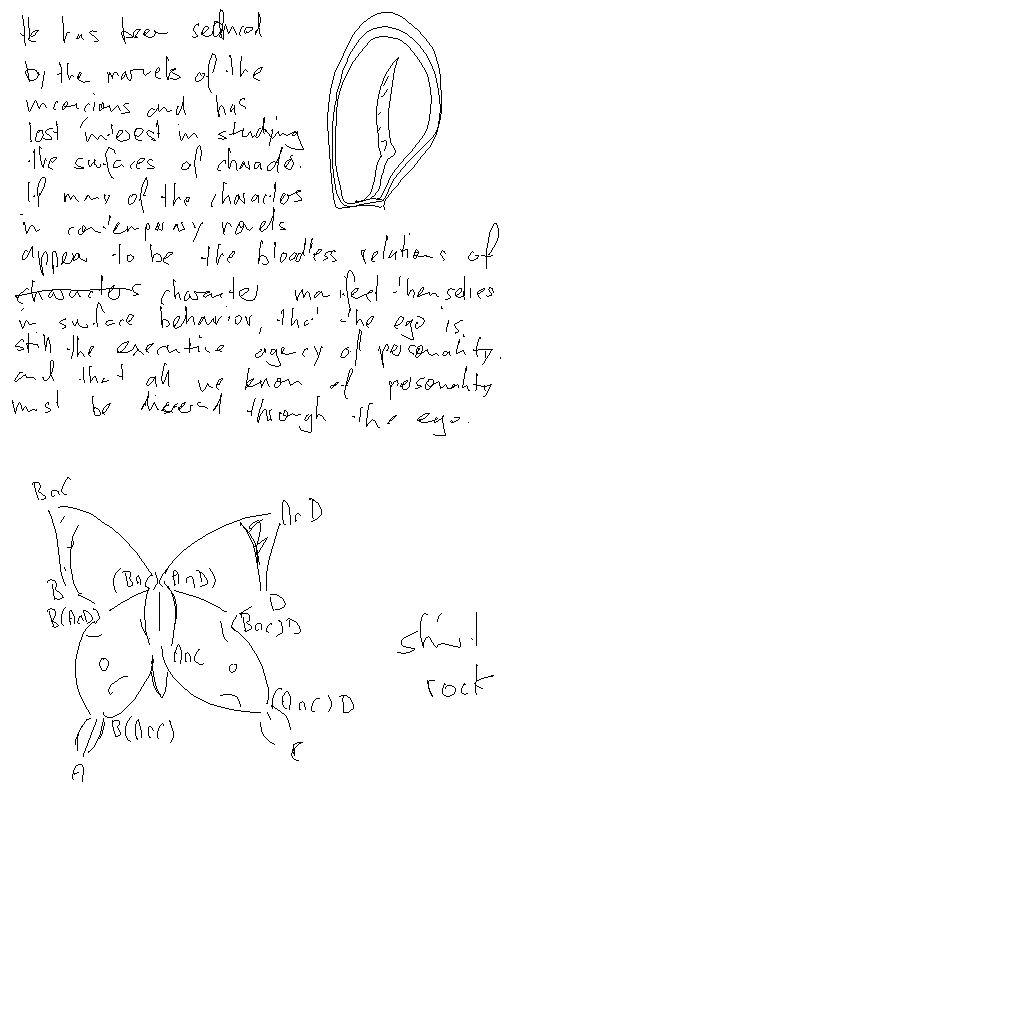 He has been seduced
by the marvels of the
unconscious and has
lost interest in studying
the surfaces of character.
If many of the characters
in contemporary novels
appear to be the bloodless relations of
characters character manifest themselves
in surface behavior, that the ego is
still the executive agency of personality.
and that all we know of personality
must be discerned through the ego.
B∩C
A∩D
(B∩C)(A∩D)
B
D
B(A∩D)
(B∩C)D
A∩C
(A∩C)D
B(A∩C)
C
A
rock